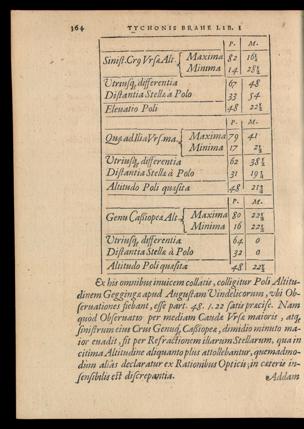 364 TYCHONIS BRAHE LIB. I
P. M.
Sinist. Crꝰ Vrsæ Alt. Maxima 82 16½
Minima 14 28½
Vtriusq; differentia 67 48
Distantia Stellæ à Polo 33 54
Eleuatio Poli 48 22½
P. M.
Quæ ad Ilia Vrs. ma. Maxima 79 41
Minima 17 2½
Vtriusq; differentia 62 38½
Distantia Stellæ à Polo 31 19¼
Altitudo Poli quæsita 48 21¾
P. M.
Genu Cassiopeæ Alt. Maxima 80 22½
Minima 16 22½
Vtriusq; differentia 64 0
Distantia Stellæ à Polo 32 0
Altitudo Poli quæsita 48 22½
Ex his omnibus inuicem collatis, colligitur Poli Altitu-
dinem Geggingæ apud Augustam Vindelicorum, vbi Ob-
seruationes fiebant, esse part. 48. 1. 22 satis præcise. Nam
quod Obseruatio per mediam Caudæ Vrsæ maioris, atq;
sinistrum eius Crus Genuq; Cassiopeæ, dimidio minuto ma-
ior euadit, fit per Refractionem illarum Stellarum, quæ in
citima Altitudine aliquanto plus attollebantur, quemadmo-
dum aliàs declaratur ex Rationibus Opticis; in cæteris in-
sensibilis est discrepantia.
Addam